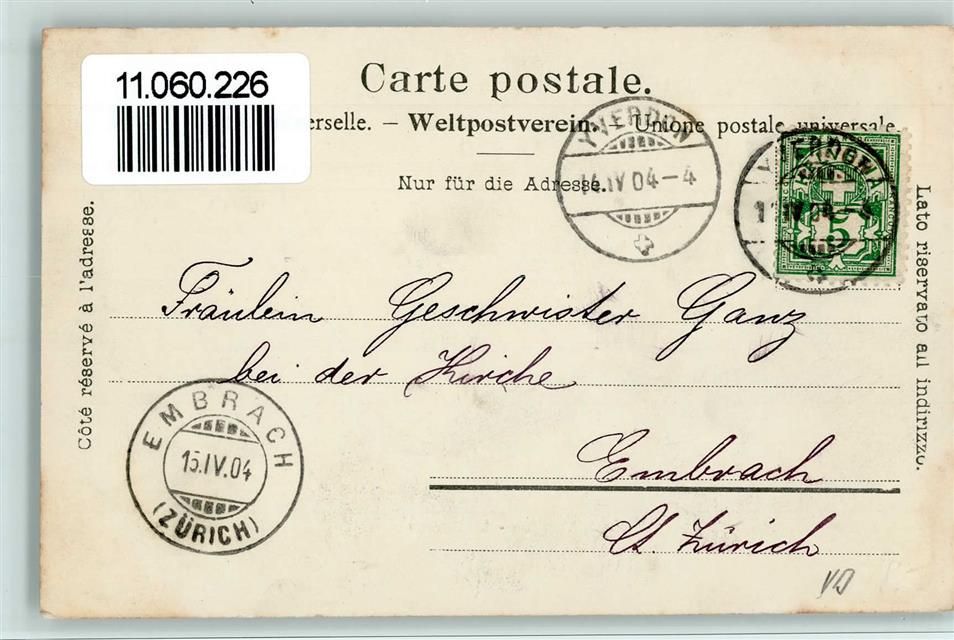 11.060.226
Carte postale.
erselle. – Weltpostverein. – Unione postale universale.
Nur für die Adresse.
YVERDON
14.IV 04–4
YVERDON
IV 04–4
5
Côté réservé à l'adresse.
Lato riservato all indirizzo.
Fräulein Geschwister Ganz
bei der Kirche
Embrach
Ct. Zürich
EMBRACH
15.IV.04
(ZÜRICH)
VD